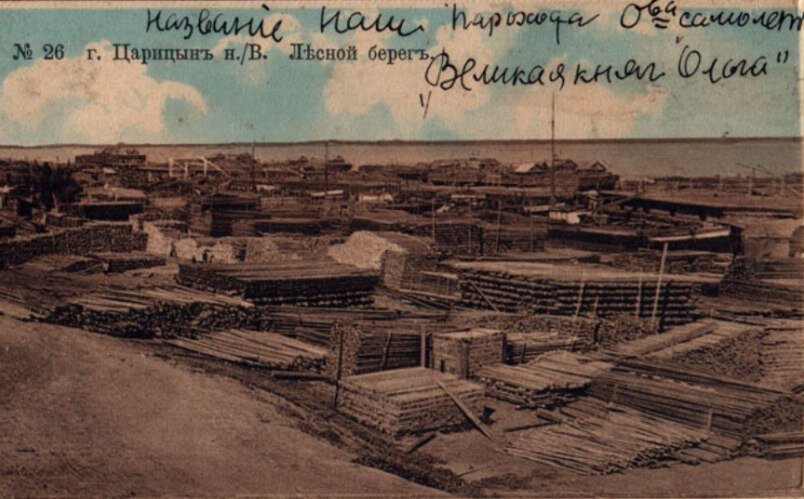 названіе наш парохода Ова самолет
№ 26 г. Царицынъ н./В. Лѣсной берегъ.
"Великая княг "Ольга"